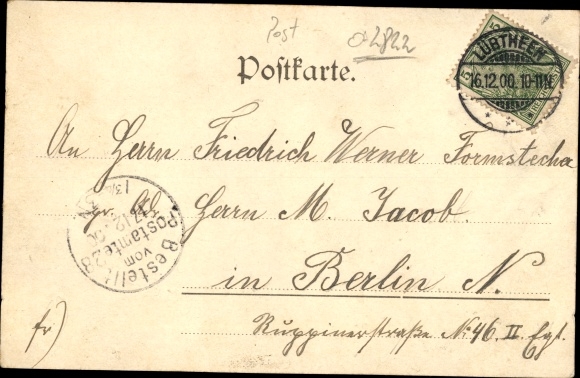 Post
02822
Postkarte.
LÜBTHEEN
16.12.00. 10-11V.
An Herrn Friedrich Werner Formstecher
pr. Adr. Herrn M. Jacob.
in Berlin N.
Ruppinerstraße No 46. II. Egt.
fr)
Bestellt
vom
Postamte 28
17.12.00